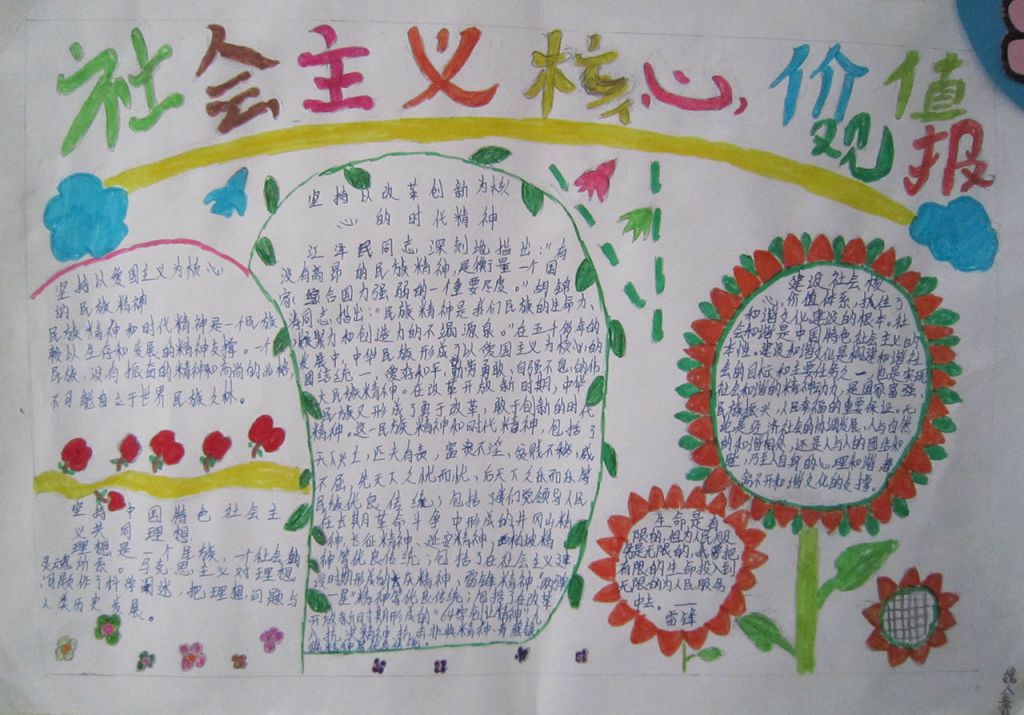 社会主义核心价值
观报
坚持以爱国主义为核心
的民族精神
民族精神和时代精神是一个民族
赖以生存和发展的精神支撑。一个
民族,没有振奋的精神和高尚的品格,
不可能自立于世界民族之林。
坚持中国特色社会主
义共同理想
理想是一个民族、一个社会的
灵魂所系。马克思主义对理想
问题作了科学阐述,把理想问题与
人类历史发展。
坚持以改革创新为核
心的时代精神
江泽民同志深刻地指出:"有
没有高昂的民族精神,是衡量一个国
家综合国力强弱的一个重要尺度。"胡锦
涛同志指出:"民族精神是我们民族的生命力、
凝聚力和创造力的不竭源泉。"在五千多年的
发展中,中华民族形成了以爱国主义为核心的
团结统一、爱好和平、勤劳勇敢、自强不息的伟
大民族精神。在改革开放新时期,中华
民族又形成了勇于改革、敢于创新的时代
精神。这一民族精神和时代精神,包括了
天下兴亡、匹夫有责,富贵不淫、贫贱不移、威
不屈,先天下之忧而忧、后天下之乐而乐等
民族优良传统;包括了我们党领导人民
在长期革命斗争中形成的井冈山精
神、长征精神、延安精神、西柏坡精
神等优良传统;包括了在社会主义建
设时期形成的大庆精神、雷锋精神、两弹
一星"精神等优良传统;包括了在改革
开放新时期形成的"64字创业精神、
建设社会核
心价值体系,抓住了
和谐文化建设的根本。社
会和谐是中国特色社会主义的
本性。建设和谐文化是构建和谐社
会的目标和主要任务之一,也是实现
社会和谐的精神动力,是国家富强、
民族振兴、人民幸福的重要保证。无
论是经济社会的协调发展、人与自然
的和谐相处,还是人与人的团结和
睦,乃至人自身的心理和谐,都
离不开和谐文化的支撑。
生命是有
限的,但为人民服
务是无限的,我要把
有限的生命投入到
无限的为人民服务
中去。——
雷锋